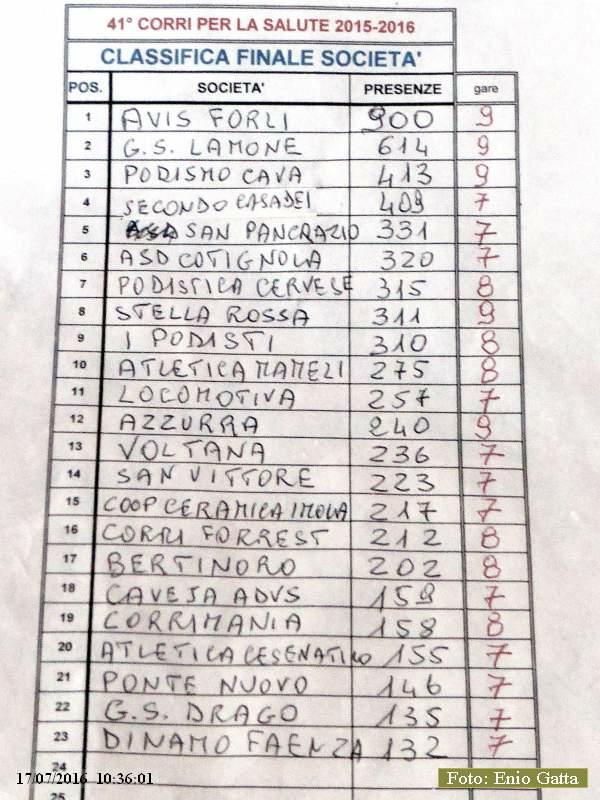 41° CORRI PER LA SALUTE 2015-2016
CLASSIFICA FINALE SOCIETA'
POS. SOCIETA' PRESENZE gare
1 AVIS FORLI 900 9
2 G.S. LAMONE 614 9
3 PODISMO CAVA 413 9
4 SECONDO CASADEI 409 7
5 SAN PANCRAZIO 331 7
6 ASD COTIGNOLA 320 7
7 PODISTICA CERVESE 315 8
8 STELLA ROSSA 311 9
9 I PODISTI 310 8
10 ATLETICA MAMELI 275 8
11 LOCOMOTIVA 257 7
12 AZZURRA 240 9
13 VOLTANA 236 7
14 SAN VITTORE 223 7
15 COOP CERAMICA IMOLA 217 7
16 CORRI FORREST 212 8
17 BERTINORO 202 8
18 CAVEJA ADVS 159 7
19 CORRIMANIA 158 8
20 ATLETICA CESENATICO 155 7
21 PONTE NUOVO 146 7
22 G.S. DRAGO 135 7
23 DINAMO FAENZA 132 7
24
25
17/07/2016 10:36:01
Foto: Enio Gatta